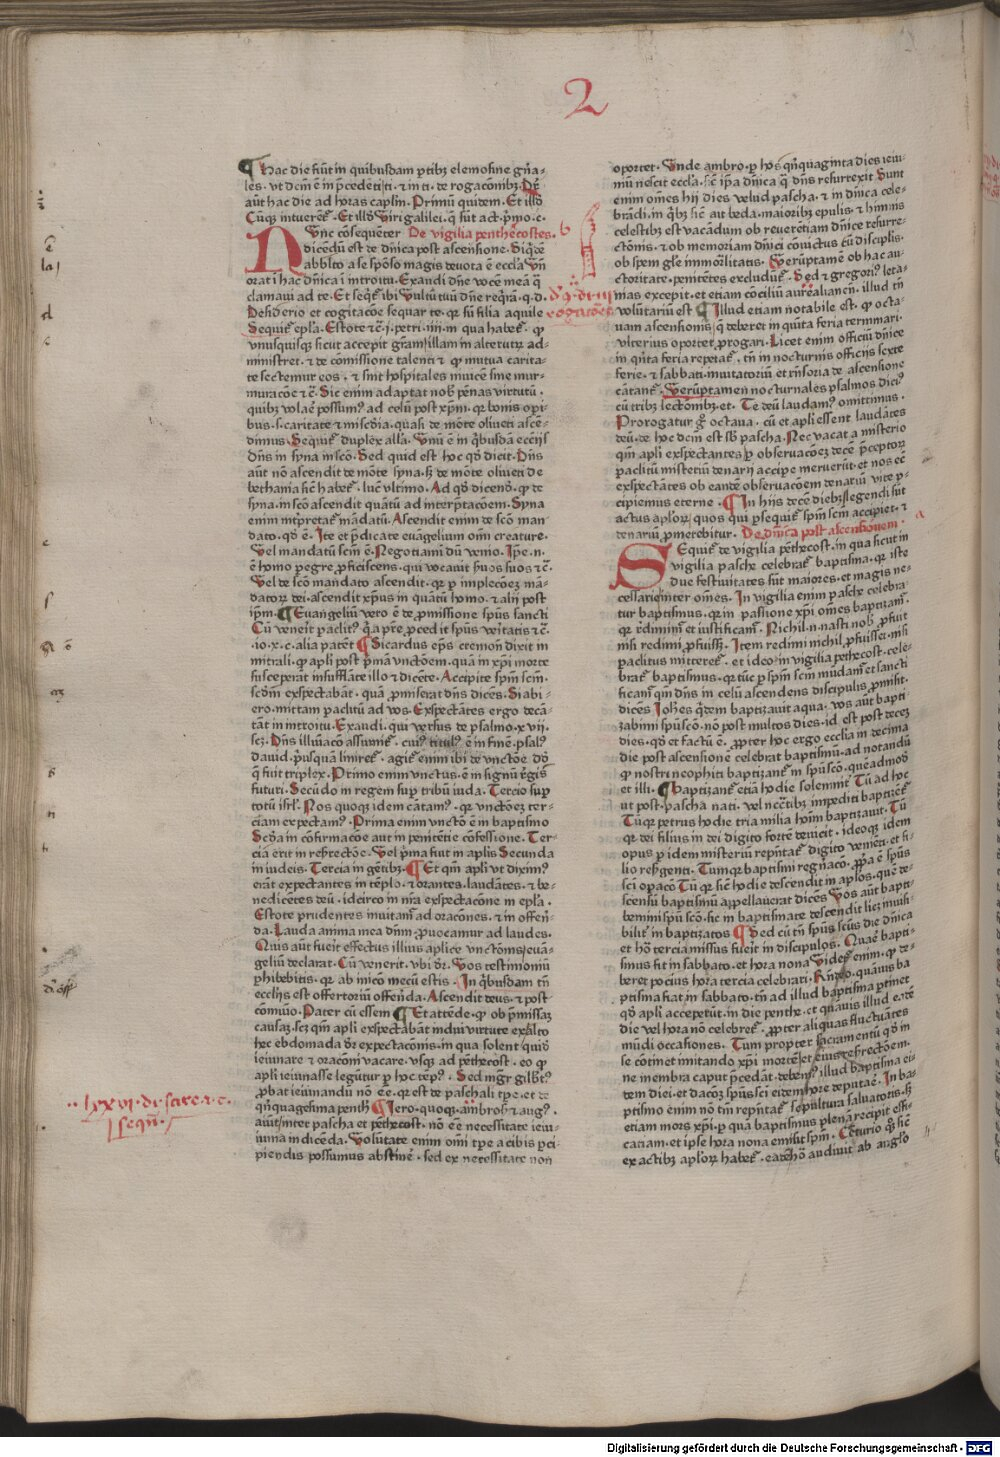 2
¶ Hac die fiūt in quibusdam ꝑtibꝫ elemosine gn̄a-
les · vt dcm̄ ē in p̄cedēti ti · ⁊ in ti · de rogacōnibꝫ
aūt hac die ad horas caplm̄ · Primū quidem · Et illð
Cūqꝫ intuerēt · Et illð Viri galilei · q̄ sūt act · pͥmo · c ·
Nvnc cōsequēter De vigilia penthecostes · b
dicēdū est de dn̄ica post ascensione
a se sponso magis deuota ē eccla
orat ī hac dn̄ica ī introitu · Exaudi dn̄e vocē meā q̄
clamaui ad te · Et seqͥt ibi vultū tuū dn̄e reqͥrā · q · d ·
Desiderio et cogitacōe sequar te · qr sū filia aquile
Sequit epl̄a · Estote ⁊c̄ · j · petri · iiij · in qua habet · ꝙ
vnusquisqꝫ sicut accepit grām illam in alterutrū ad-
ministret · ⁊ de cōmissione talenti ⁊ ꝙ mutua carita-
te sectemur eos · ⁊ sint hospitales inuicē sine mur-
muracōe ⁊c̄ · Sic enim adaptat nob̄ pēnas virtutū ·
quibꝫ volaē possumꝰ ad celū post xp̄m · qr bonis opi-
bus · s · caritate ⁊ miscðia · quasi de mōte oliueti ascē-
dimus · Sequit duplex all̄a · Vnū ē in qͥbusdā eccl̄ijs
Dn̄s in syna in scō · Sed quid est hoc qð dicit · Dn̄s
aūt nō ascendit de mōte syna · sꝫ de mōte oliueti de
bethania sic̄ habet · luce vltimo · Ad qð dicenð · ꝙ de
syna · in scō ascendit quātū ad interp̄tacōem · Syna
enim interpretat mādatū · Ascendit enim de scō man-
dato · qð ē · Ite et p̄dicate euāgelium om̄i creature ·
Vel mandatū scm̄ ē · Negotiamī dū venio · Ipe · n ·
ē homo pegre ꝓficiscens · qui vocauit suos ⁊c̄ ·
Vel de scō mandato ascendit · qr ꝑ implecōeꝫ mā-
datorꝫ dei · ascendit xp̄us in quātū homo · ⁊ alij post
ip̄m · ¶ Euangeliū vero ē de ꝓmissione spūs sancti
Cū venerit paclitꝰ · q̄ a pr̄e ꝓcedit spūs vēitatis ⁊c̄ ·
· io · x · c · alia patēt ¶ Sicardus ep̄s cremon̄ dixit in
mitrali · ꝙ apl̄i post pͥmā vnctōem · quā in xp̄i morte
susceperāt insufflāte illo ⁊ dicēte · Accipite spm̄ scm̄ ·
scðm exspectabāt · quā ꝓmiserat dn̄s dicēs · Si abi-
ero · mittam paclitū ad vos · Exspectātes ergo decā-
tāt in introitu · Exaudi · qui versus de psalmo · xvij ·
scꝫ · Dn̄s illūiacō assumit · cuiꝰ titulꝰ · ē in finē · psalꝰ
dauid · pͥusquā liniret · agit enim ibi de vnctōe
q̄ fuit triplex · Primo enim vnctus · ē in signū
futuri · Secūdo in regem suꝑ tribū iuda · Tercio suꝑ
totū isrl̄ · Nos quoqꝫ idem cātamꝰ · qr vnctōeꝫ ter-
ciam expectamꝰ · Prima enim vnctō ē in baptismo
Scðā in cōfirmacōe aut in penitētie cōfessione · Ter-
cia erit in resͬrectōe · Vel pͥma fiut in apl̄is Secunda
in iudeis · Tercia in gētibꝫ · ¶ Et qm̄ apl̄i vt diximꝰ
erāt expectantes in tēplo · ⁊ orantes · laudātes · ⁊ be-
nedicētes deū · idcirco in nr̄a exspectacōne in epl̄a ·
Estote prudentes inuitam̄ ad oracōnes · ⁊ in offen-
da · Lauda anima mea dn̄m ꝓuocamur ad laudes ·
Quis aūt fuerit effectus illius aplice vnctōnis euā-
geliū declarat · Cū venerit · vbi dr̄ · Vos testimoniū
phibebitis · qr ab inicō mecū estis · In qͥbusdam tn̄
eccl̄ijs est offertoriū offen̄da · Ascendit deus · ⁊ post
comūio · Pater cū essem ¶ Et attēde · ꝙ ob ꝓmissaꝫ
causaꝫ · scꝫ qm̄ apl̄i exspectabāt indui virtute ex alto
hec ebdomada dr̄ expectacōnis · in qua solent quidā
ieiunare ⁊ oracōni vacare · vsqꝫ ad pēthecost̄ · eo ꝙ
apl̄i ieiunasse legūtur ꝑ hoc tēpꝰ · Sed mgr̄ gilbtꝰ
ꝓbat ieiunandū nō eē · qr est de paschali tpe · et de
qn̄quagesima penth̄ ¶ Iero · quoqꝫ · ambroꝰ ⁊ augꝰ ·
aiunt inter pascha et pēthecost · nō eē necessitate ieiu-
iunia indicēda · Volūtate enim om̄i tpe a cibis pci-
piendis possumus abstinē · sed ex necessitate non
oportet · Vnde ambro · ꝑ hos qn̄quaginta dies ieiu-
niū nescit eccl̄a · sic̄ ipa dn̄ica q̄ dn̄s resurrexit · Sunt
enim om̄es hij dies velud pascha · ⁊ in dn̄ica cele-
brādi · in qͥbꝫ sic̄ ait beda · maioribꝫ epulis · ⁊ himnis
celestibꝫ est vacādum ob reuerētiam dn̄ice resurre-
ctōnis · ⁊ ob memoriam dn̄ici cōuictus cū disciplis ·
ob spem gl̄e immorͣlitatis · Verūptamē ob hac au-
ctoritate · penitētes excludūt · Sed ⁊ gregoriꝰ leta-
nias excepit · et etiam cōciliū aurelianen̄ · illud tn̄
volūtariū est ¶ Illud etiam notabile est · ꝙ octa-
uam ascensionis q̄ deberet in quīta feria terminari ·
vlterius oportet ꝓrogari · Licet enim officiū dn̄ice
in qn̄ta feria repetat · tn̄ in nocturnis officijs sexte
ferie · ⁊ sabbati · inuitatoriū et rn̄soria de ascensione
cātant · Verūptamen nocturnales psalmos dicimꝰ
cū tribꝫ lectōnibꝫ · et · Te deū laudamꝰ omittimus ·
Prorogatur gͦ octaua · cū et apl̄i essent laudātes
deū · de hoc dcm̄ est sb̄ pascha · Nec vacat a misterio
qm̄ apl̄i exspectantes ꝑ obseruacōeꝫ decē p̄ceptorꝫ
paclitū misteriū denarij accipe meruerūt · et nos eē
exspectātes ob eandē obseruacōem denariū vite ꝑ-
cipiemus eterne · ¶ In hijs decē diebꝫ legendi sūt
actus apl̄orꝫ · quos qui ꝑsequit spm̄ scm̄ accipiet · ⁊
denariū ꝓmerebitur · De dn̄ica post ascensionem · a
SEquit de vigilia pēthecost · in qua sicut in
vigilia pasche celebrat baptisma · qr iste
due festiuitates sūt maiores · et magis ne-
cessarie inter om̄es · In vigilia enim pasche celebra-
tur baptismus · qr in passione xp̄i om̄es baptizam̄ ·
qr rdimim̄ et iustificam̄ · Nichil · n · nasti nob̄ ꝓfuit
nisi redimi ꝓfuiss̄ · Item redimi nichil ꝓfuisset · nisi
paclitus mitteret · et ideo in vigilia pēthecost · cele-
brat baptismus · qr tūc ꝑ spm̄ scm̄ mūdam̄ et sancti
ficam̄ qm̄ dn̄s in celū ascendens discipulis ꝓmisit ·
dicēs Ioh̄es qͥdem baptizauit aqua · vos aūt bapti
zabimi spū scō · nō post multos dies · id est post deceꝫ
dies · qð et factū ē · ꝓpter hoc ergo ecclia in decima
die post ascensione celebrat baptismū · ad notandū
ꝙ nostri neophiti baptizant in spū scō · queadmoð
et illi · ¶ Baptizant etiā hodie solemnit̄ Tū ad hoc
ut post · pascha nati · vel nec̄tibꝫ impediti baptizent̄
Tū qr petrus hodie tria milia hoīm baptizauit · Tū
qr dei filius in dei digito fortē deuicit · ideoqꝫ idem
opus ꝑ idem misteriū repn̄tat̄ digito et fi-
lio resͬgenti · Tum qr baptismi regn̄acō · ꝓpͥa ē spūs
sci opacō Tū qr sic̄ hodie descendit in apl̄os · quē de-
scensū baptismū appellauerat dicēs Vos aūt bapti-
bemini spū scō · sic in baptismate descendit licꝫ inuisi-
bilit̄ in baptizatos ¶ Sed cū tn̄ spūs scūs die dn̄ica
et hō tercia missus fuerit in discipulos · Quaē bapti-
smus fit in sabbato · et hora nona Vidēt enim · ꝙ de-
beret pocius hora tercia celebrari · Rn̄deo · quāuis ba
ptisma fiat in sabbato · tn̄ ad illud baptisma ptinet
qð apl̄i acceperūt · in die penthe · et quāuis illud eadē
die vel hora nō celebret · ꝓpter aliquas fluctuātes
mūdi occasiones · Tum propter sacramentū qð in
se cōtinet imitando xp̄i mortē et eius resͬrectōem ·
ne membra caput p̄cedāt · debemꝰ illud baptisma ei-
dem diei · et dacōeꝫ spūs sci eidem hore deputaē · In ba-
ptismo enim nō tm̄ repn̄tat̄ sepultura saluatoris · sꝫ
etiam mors xp̄i · ꝑ quā baptismus plenā recipit effi-
catiam · et ipse hora nona emisit spm̄ · Cēturio qͦꝫ sic̄
ex actibꝫ apl̄orꝫ habet · eadē hō audiuit ab angl̄o
Digitalisierung gefördert durch die Deutsche Forschungsgemeinschaft - DFG